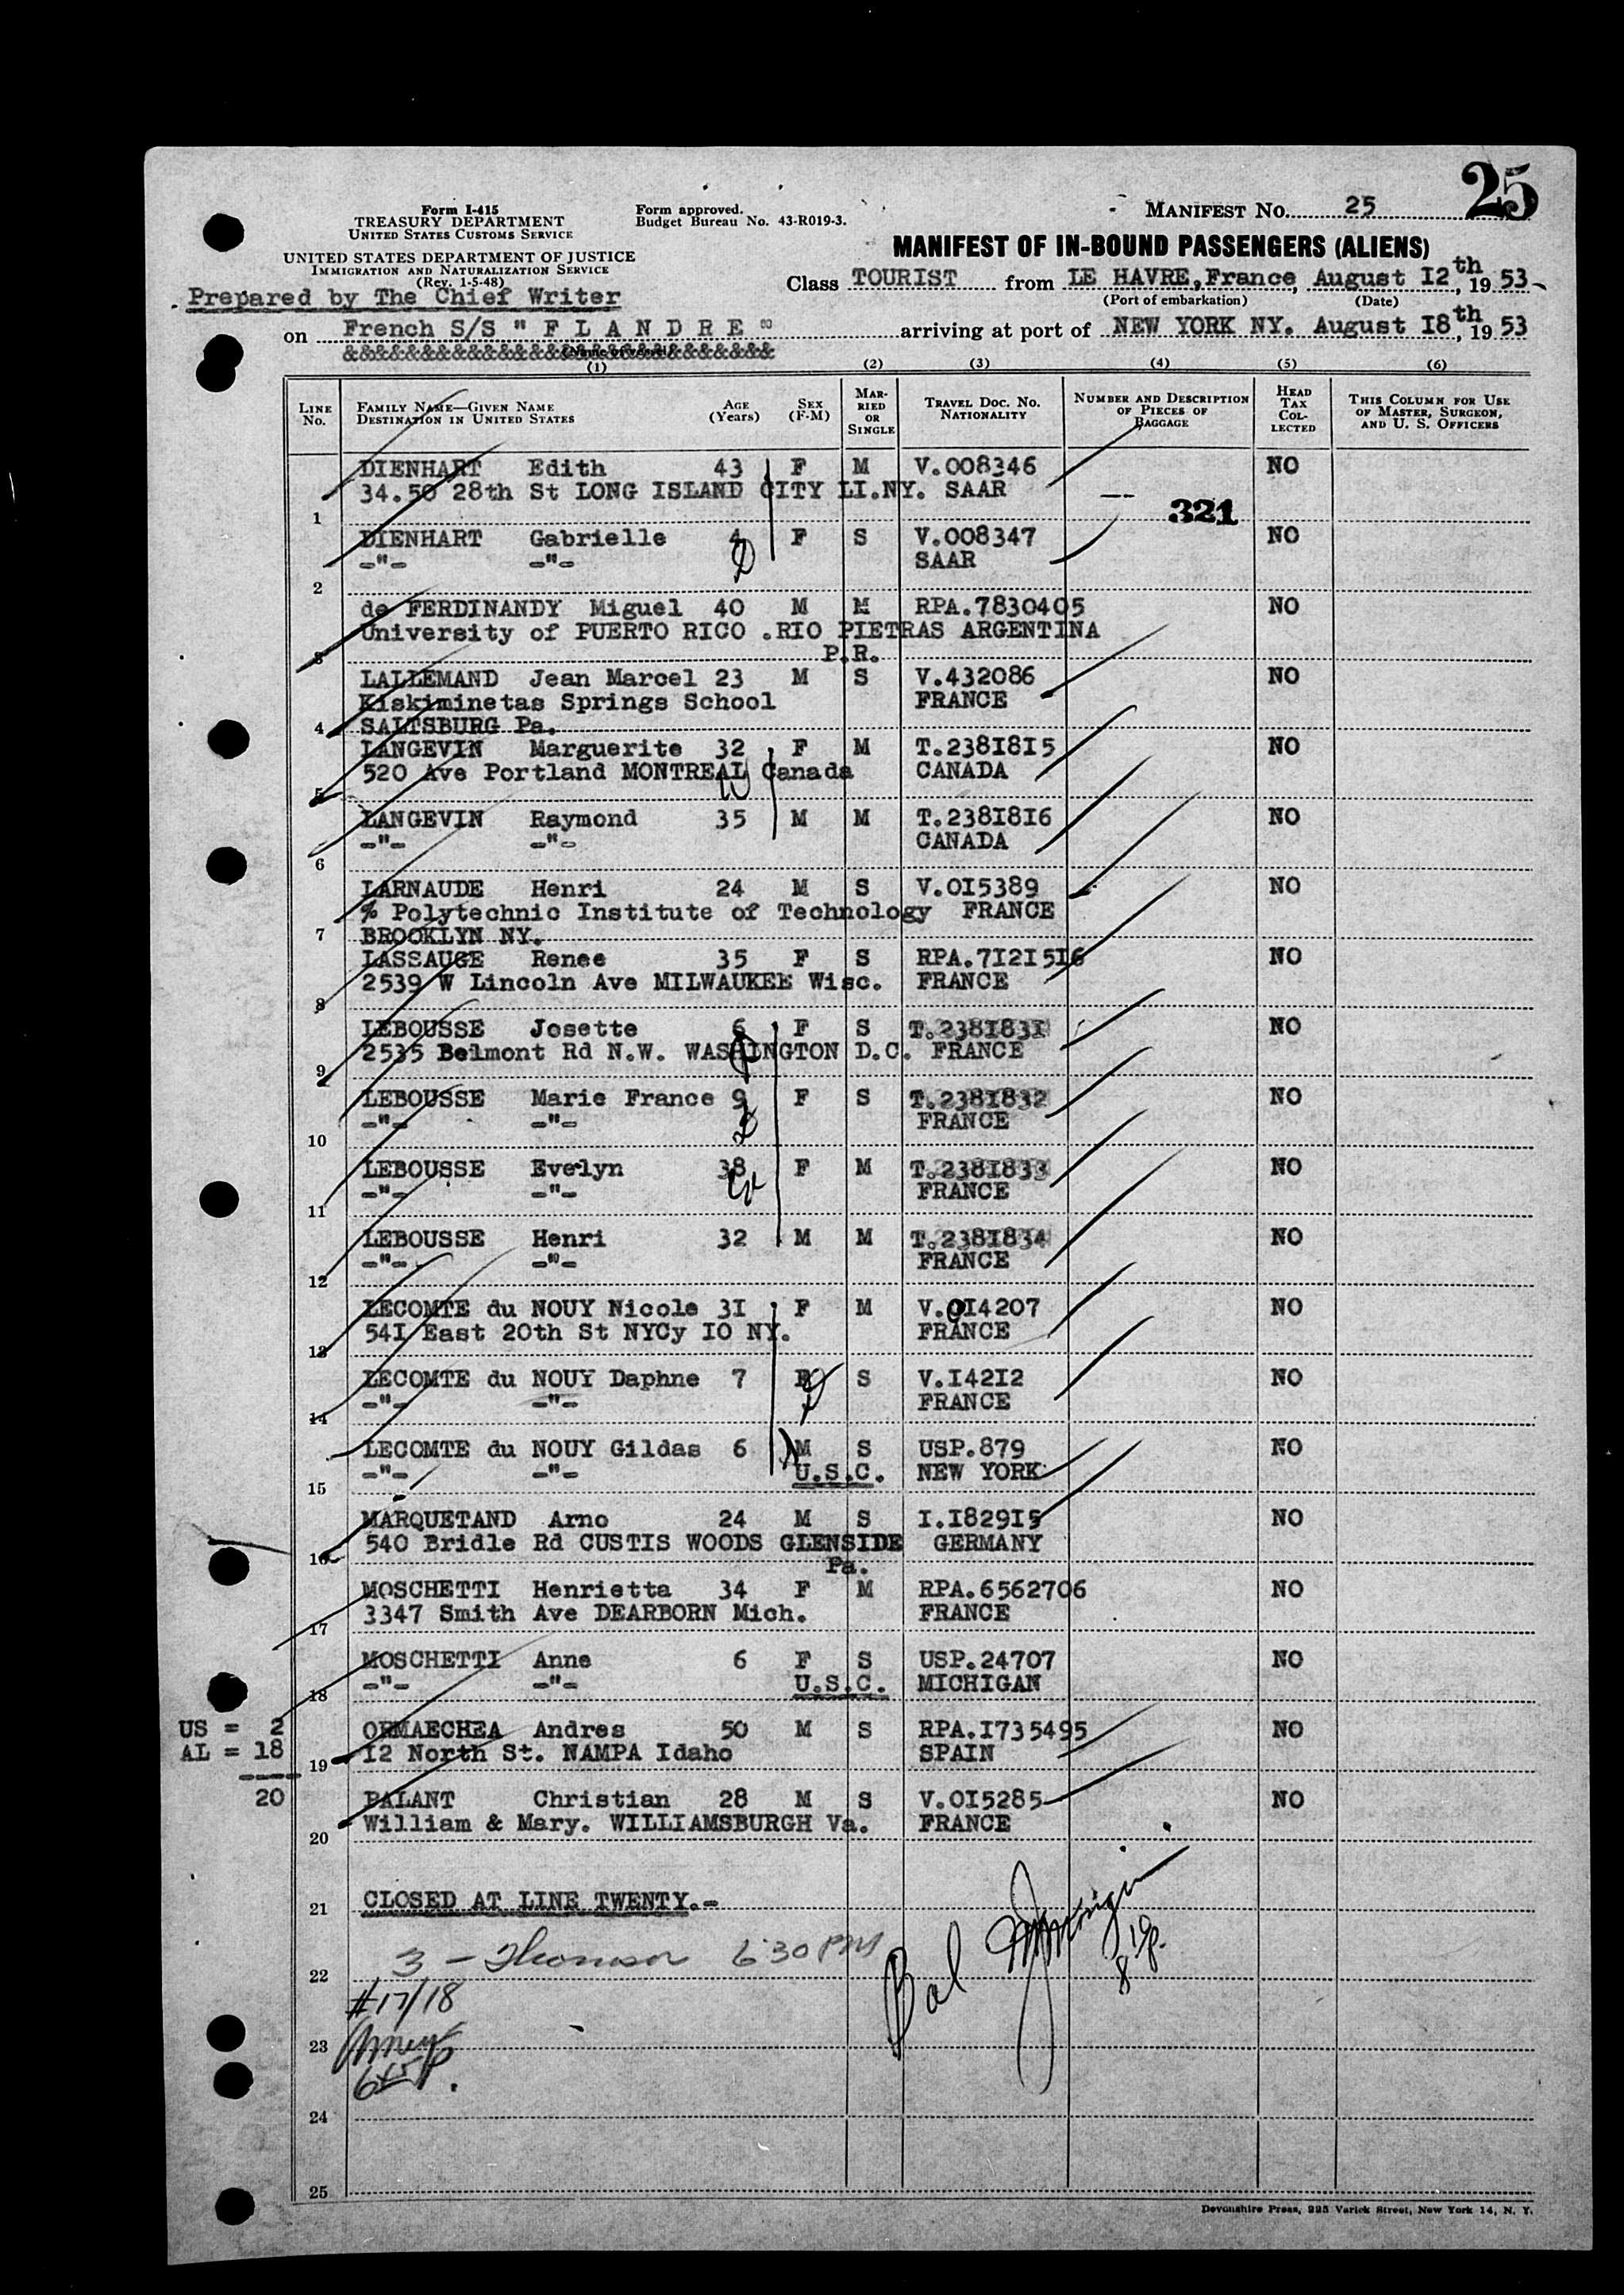 25
Form I-415
TREASURY DEPARTMENT
UNITED STATES CUSTOMS SERVICE
UNITED STATES DEPARTMENT OF JUSTICE
IMMIGRATION AND NATURALIZATION SERVICE
(Rev. 1-5-48)
Form approved.
Budget Bureau No. 43-R019-3.
MANIFEST No. 25
MANIFEST OF IN-BOUND PASSENGERS (ALIENS)
Prepared by The Chief Writer
Class TOURIST from LE HAVRE, France, August I2th, 1953
(Port of embarkation) (Date)
on French S/S " F L A N D R E " arriving at port of NEW YORK NY. August I8th, 1953
&&&&&&&&&&&&&&&&&&&&&&&&&&&&
(Name of vessel)
(1) (2) (3) (4) (5) (6)
LINE No. FAMILY NAME—GIVEN NAME DESTINATION IN UNITED STATES AGE (Years) SEX (F-M) MARRIED OR SINGLE TRAVEL DOC. NO. NATIONALITY NUMBER AND DESCRIPTION OF PIECES OF BAGGAGE HEAD TAX COLLECTED THIS COLUMN FOR USE OF MASTER, SURGEON, AND U. S. OFFICERS
DIENHART Edith 43 F M V.008346 NO
34.50 28th St LONG ISLAND CITY LI.NY. SAAR
1 321
DIENHART Gabrielle 4 F S V.008347 NO
-"- -"- SAAR
2
de FERDINANDY Miguel 40 M M RPA.7830405 NO
University of PUERTO RICO .RIO PIETRAS ARGENTINA
3 P.R.
LALLEMAND Jean Marcel 23 M S V.432086 NO
Kiskiminetas Springs School FRANCE
4 SALTSBURG Pa.
LANGEVIN Marguerite 32 F M T.238I8I5 NO
520 Ave Portland MONTREAL Canada CANADA
5
LANGEVIN Raymond 35 M M T.238I8I6 NO
-"- -"- CANADA
6
LARNAUDE Henri 24 M S V.0I5389 NO
% Polytechnic Institute of Technology FRANCE
7 BROOKLYN NY.
LASSAUGE Renee 35 F S RPA.7I2I5I6 NO
2539 W Lincoln Ave MILWAUKEE Wisc. FRANCE
8
LEBOUSSE Josette 6 F S T.238I83I NO
2535 Belmont Rd N.W. WASHINGTON D.C. FRANCE
9
LEBOUSSE Marie France 9 F S T.238I832 NO
-"- -"- FRANCE
10
LEBOUSSE Evelyn 38 F M T.238I833 NO
-"- -"- FRANCE
11
LEBOUSSE Henri 32 M M T.238I834 NO
-"- -"- FRANCE
12
LECOMTE du NOUY Nicole 3I F M V.0I4207 NO
54I East 20th St NYCy I0 NY. FRANCE
13
LECOMTE du NOUY Daphne 7 F S V.I42I2 NO
-"- -"- FRANCE
14
LECOMTE du NOUY Gildas 6 M S USP.879 NO
-"- -"- U.S.C. NEW YORK
15
MARQUETAND Arno 24 M S I.I829I5 NO
540 Bridle Rd CUSTIS WOODS GLENSIDE GERMANY
16 Pa.
MOSCHETTI Henrietta 34 F M RPA.6562706 NO
3347 Smith Ave DEARBORN Mich. FRANCE
17
MOSCHETTI Anne 6 F S USP.24707 NO
-"- -"- U.S.C. MICHIGAN
18
US = 2 ORMAECHEA Andres 50 M S RPA.I735495 NO
AL = 18 I2 North St. NAMPA Idaho SPAIN
19
20 PALANT Christian 28 M S V.0I5285 NO
William & Mary. WILLIAMSBURGH Va. FRANCE
20
21 CLOSED AT LINE TWENTY.-
3 - Thomson 6:30 PM
22
#17/18
23
24
25
Bal
Devonshire Press, 225 Varick Street, New York 14, N. Y.